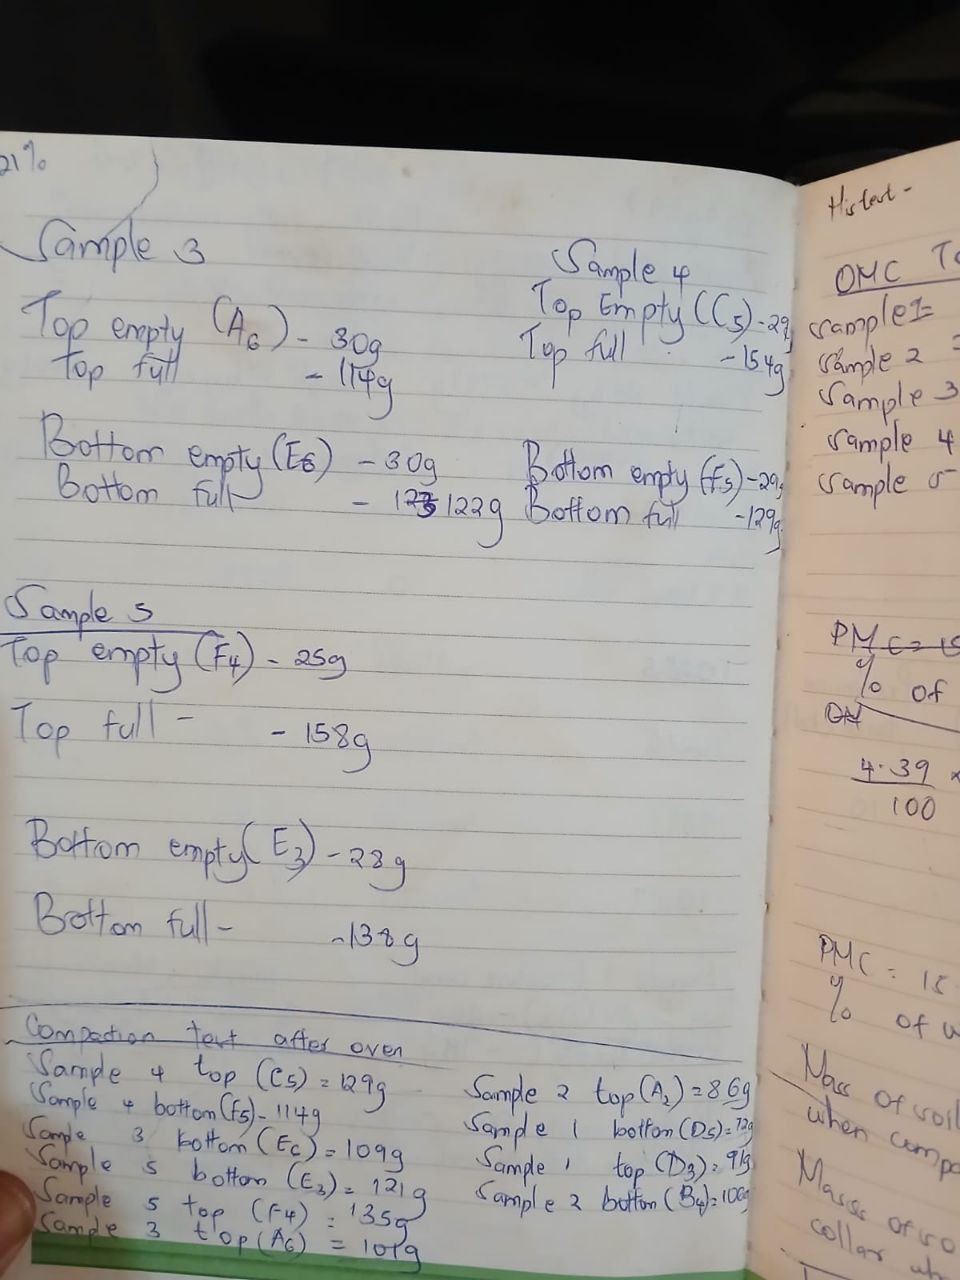 21%
Sample 3
Top empty (A6) - 30g
Top full - 114g
Bottom empty (E6) - 30g
Bottom full - 123 122g
Sample 4
Top Empty (C5) - 29
Top full - 154g
Bottom empty (F5) - 29g
Bottom full - 129g
Sample 5
Top empty (F4) - 25g
Top full - - 158g
Bottom empty (E3) - 28g
Bottom full - - 138g
Compaction test after oven
Sample 4 top (C5) = 129g
Sample 4 bottom (F5) - 114g
Sample 3 bottom (E6) = 109g
Sample 5 bottom (E3) = 121g
Sample 5 top (F4) = 135g
Sample 3 top (A6) = 101g
Sample 2 top (A2) = 86g
Sample 1 bottom (D5) = 72g
Sample 1 top (D3) = 91g
Sample 2 bottom (B4) =
OMC
Sample 1 =
Sample 2 =
Sample 3
Sample 4
Sample 5
PMC = 15
% of
4.39 x
100
PMC = 15
% of w
Mass of soil
when compa
Mass of
collar